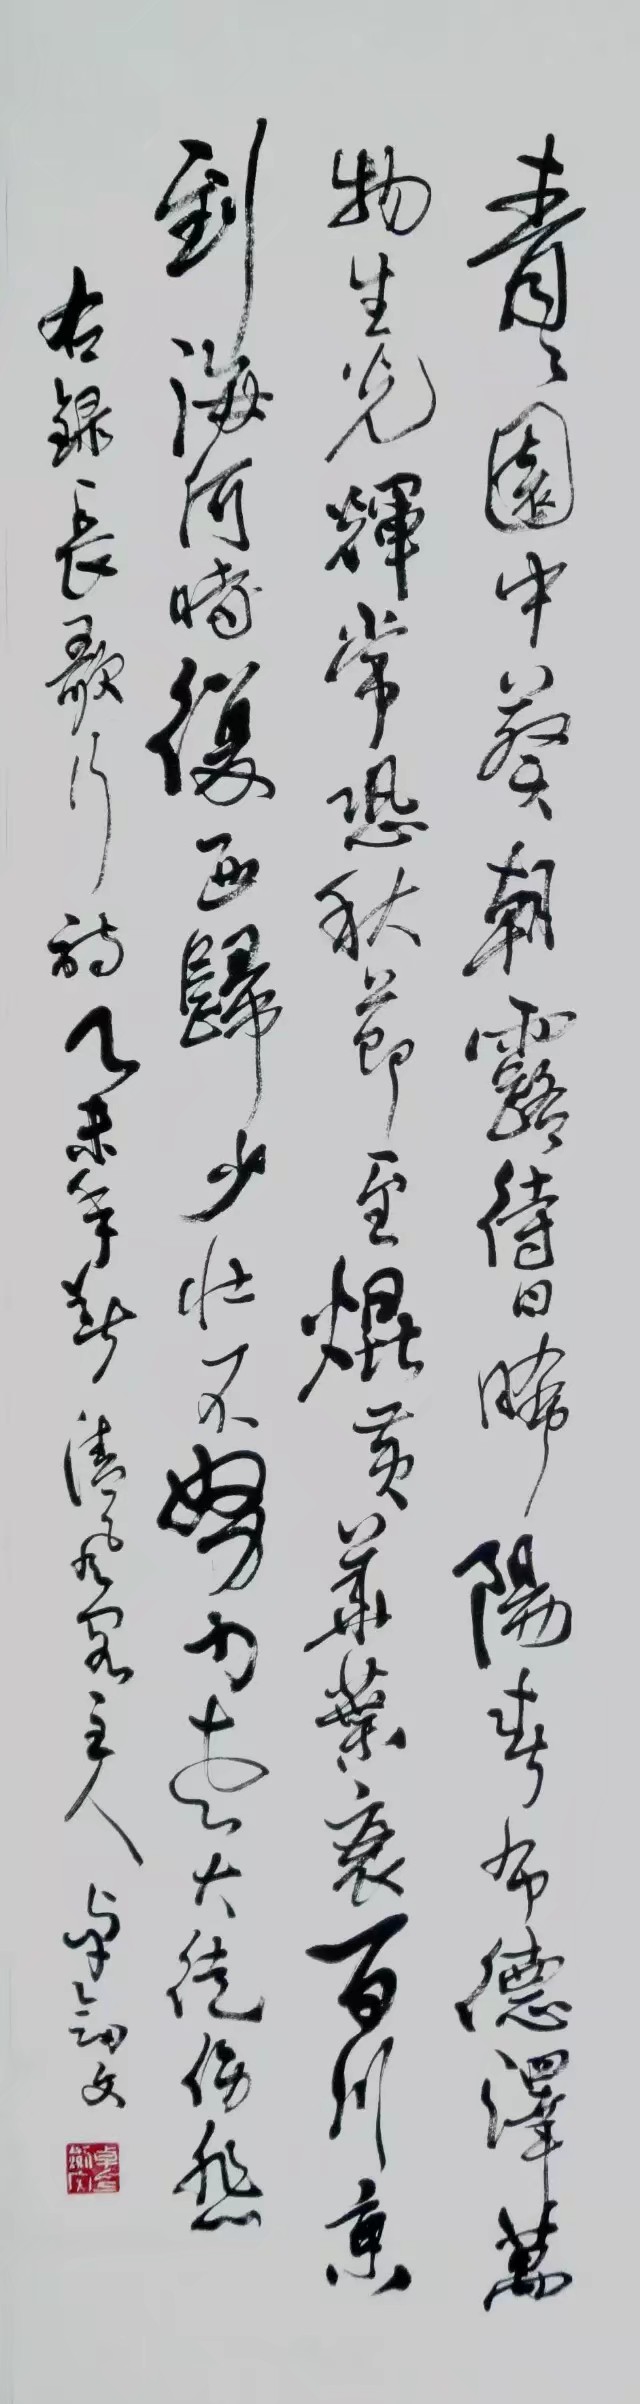 青々園中葵朝露待日晞陽春布德澤萬
物生光輝常恐秋節至焜黃華葉衰百川東
到海何時復西歸少壯不努力老大徒傷悲
右錄長歌行詩乙未年春清風主人卓文